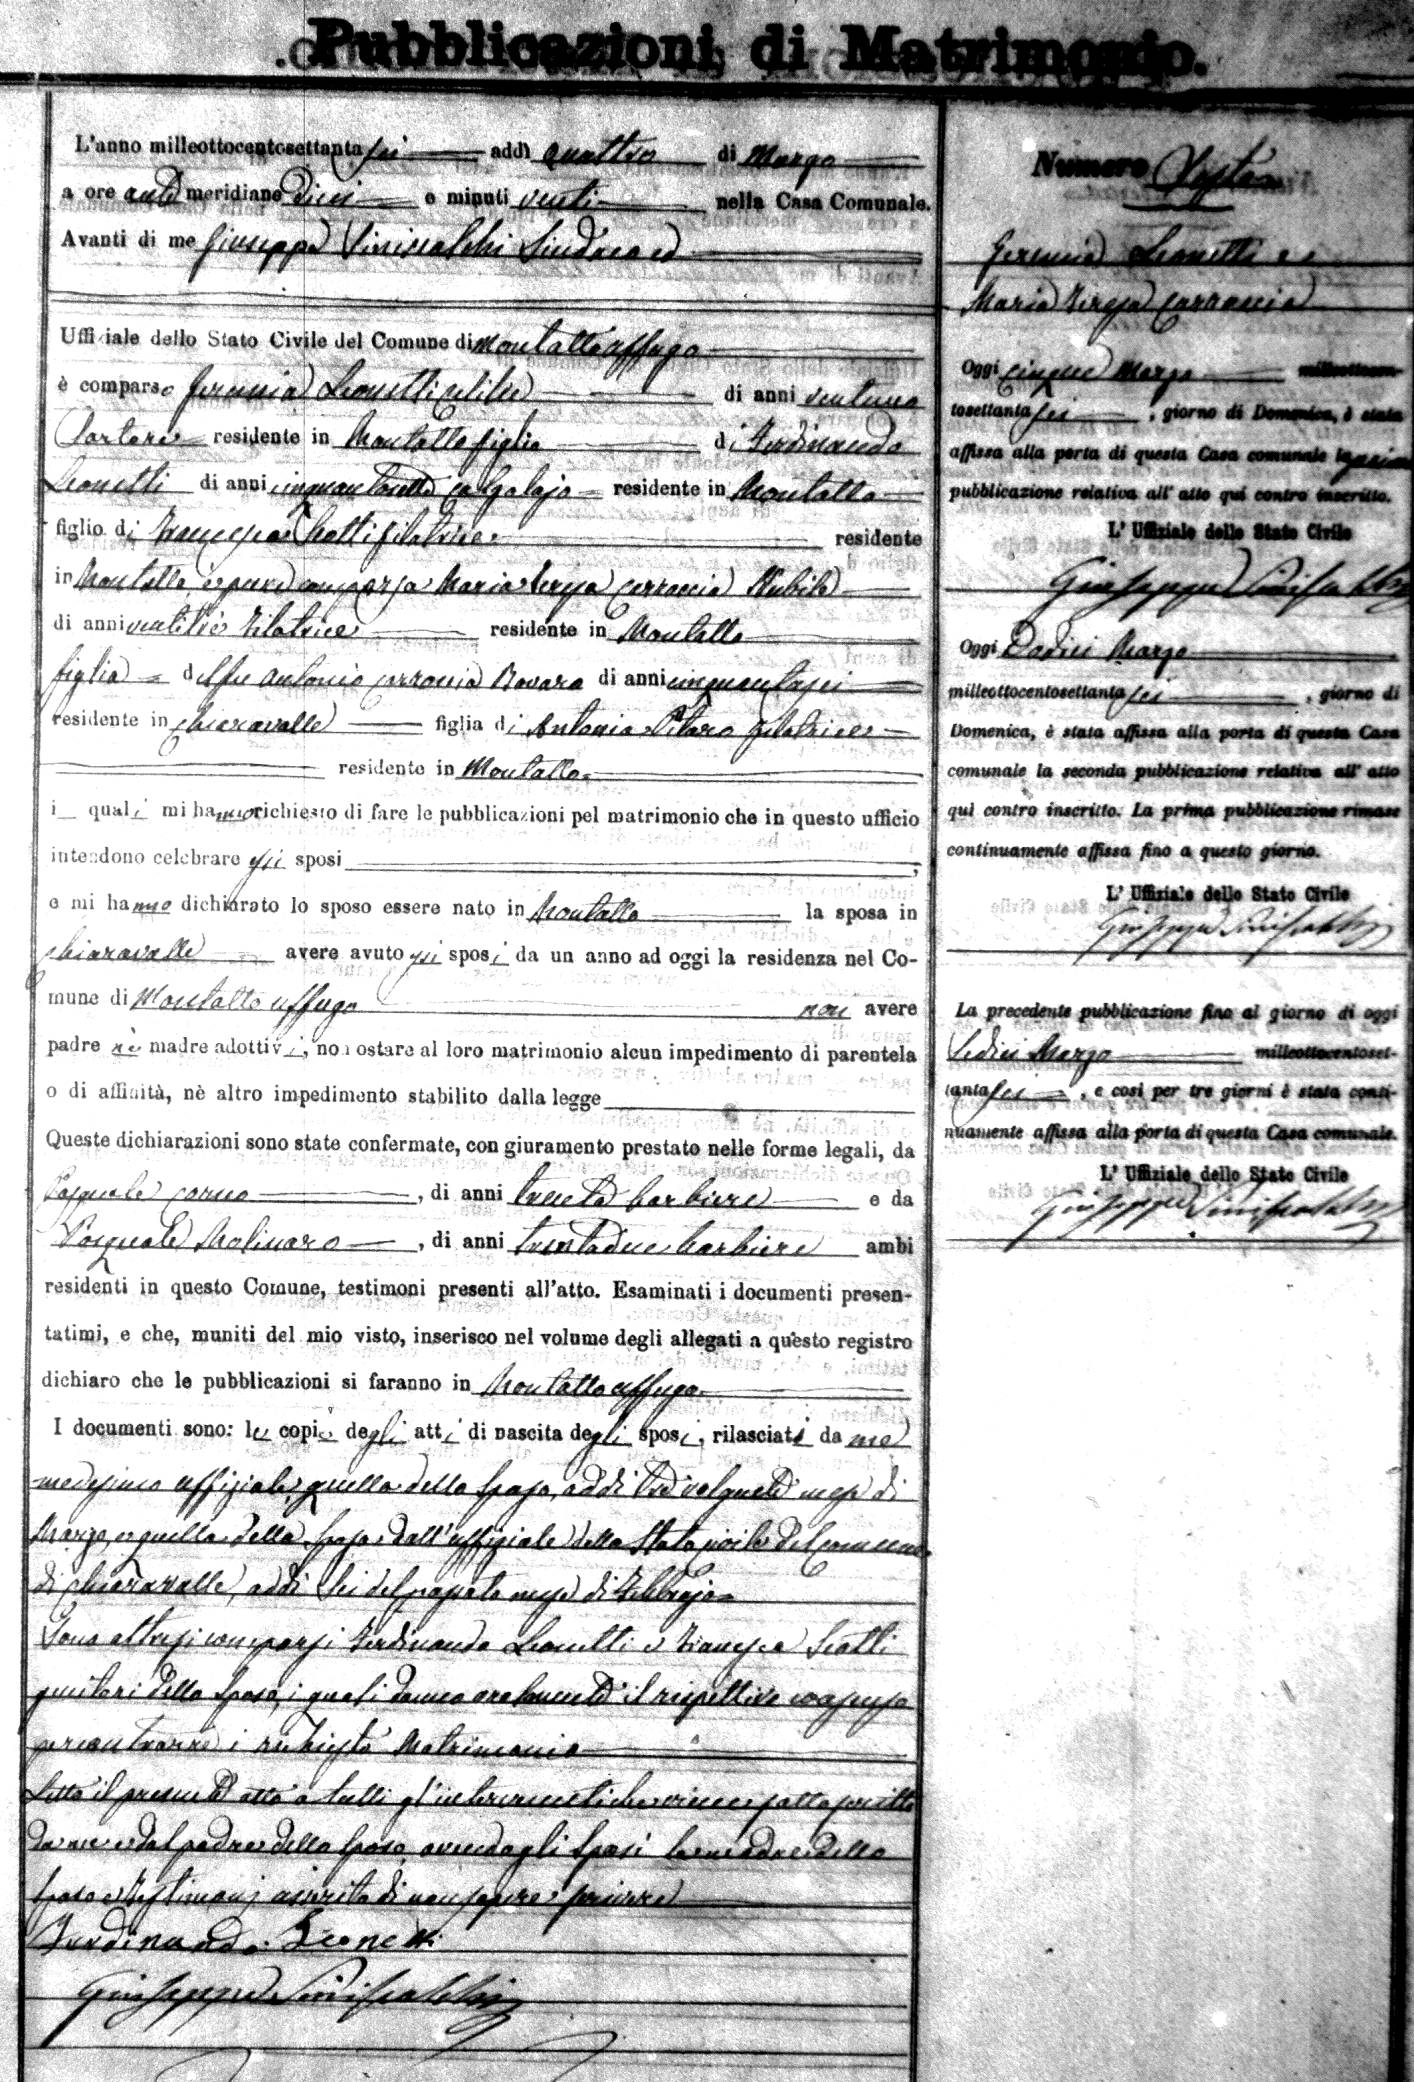 Pubblicazioni di Matrimonio.
L'anno milleottocentosettanta sei addì quattro di Marzo
a ore anti meridiane Dieci e minuti venti nella Casa Comunale.
Avanti di me Giuseppe Siniscalchi Sindaco ed
Uffiziale dello Stato Civile del Comune di Montalto uffugo
è comparso Geremia Leonetti celibe di anni ventuno
Sartore residente in Montalto figlio di Ferdinando
Leonetti di anni cinquantasette Calzolajo residente in Montalto
figlio di Francesca filatrice residente
in Montalto, e pure comparsa Maria Teresa Carroccia Nubile
di anni ventitre Filatrice residente in Montalto
figlia del fu Antonio di anni cinquantasei
residente in Chiaravalle figlia di Antonia filatrice
residente in Montalto
i quali mi hanno richiesto di fare le pubblicazioni pel matrimonio che in questo ufficio
intendono celebrare essi sposi ;
e mi hanno dichiarato lo sposo essere nato in Montalto la sposa in
Chiaravalle avere avuto essi sposi da un anno ad oggi la residenza nel Co-
mune di Montalto uffugo non avere
padre nè madre adottivi, non ostare al loro matrimonio alcun impedimento di parentela
o di affinità, nè altro impedimento stabilito dalla legge
Queste dichiarazioni sono state confermate, con giuramento prestato nelle forme legali, da
Pasquale , di anni trenta barbiere e da
Pasquale Molinaro , di anni trentadue barbiere ambi
residenti in questo Comune, testimoni presenti all'atto. Esaminati i documenti presen-
tatimi, e che, muniti del mio visto, inserisco nel volume degli allegati a questo registro
dichiaro che le pubblicazioni si faranno in Montalto uffugo.
I documenti sono: le copie degli atti di nascita degli sposi, rilasciati da me
medesimo uffiziale, quella dello sposo, addì tre volgente mese di
Marzo, e quella della sposa dall'uffiziale dello Stato civile del Comune
di Chiaravalle, addì sei del passato mese di Febbrajo
Sono altresì comparsi Ferdinando Leonetti e Francesca
genitori dello sposo, i quali danno oralmente il rispettivo consenso
per contrarre i richiesto Matrimonio
Letto il presente atto a tutti gl'intervenuti che viene sottoscritto
da me e dal padre dello sposo, avendo gli sposi la madre dello
sposo e testimonj asserito di non sapere scrivere
Ferdinando Leonetti
Giuseppe Siniscalchi
Numero
Geremia Leonetti e
Maria Teresa Carroccia
Oggi cinque Marzo milleottocen-
tosettanta sei , giorno di Domenica, è stata
affissa alla porta di questa Casa comunale la prima
pubblicazione relativa all' atto qui contro inscritto.
L' Uffiziale dello Stato Civile
Giuseppe Siniscalchi
Oggi Dodici Marzo
milleottocentosettanta sei , giorno di
Domenica, è stata affissa alla porta di questa Casa
comunale la seconda pubblicazione relativa all' atto
qui contro inscritto. La prima pubblicazione rimase
continuamente affissa fino a questo giorno.
L' Uffiziale dello Stato Civile
Giuseppe Siniscalchi
La precedente pubblicazione fino al giorno di oggi
Sedici Marzo milleottocentoset-
tanta sei , e così per tre giorni è stata conti-
nuamente affissa alla porta di questa Casa comunale.
L' Uffiziale dello Stato Civile
Giuseppe Siniscalchi